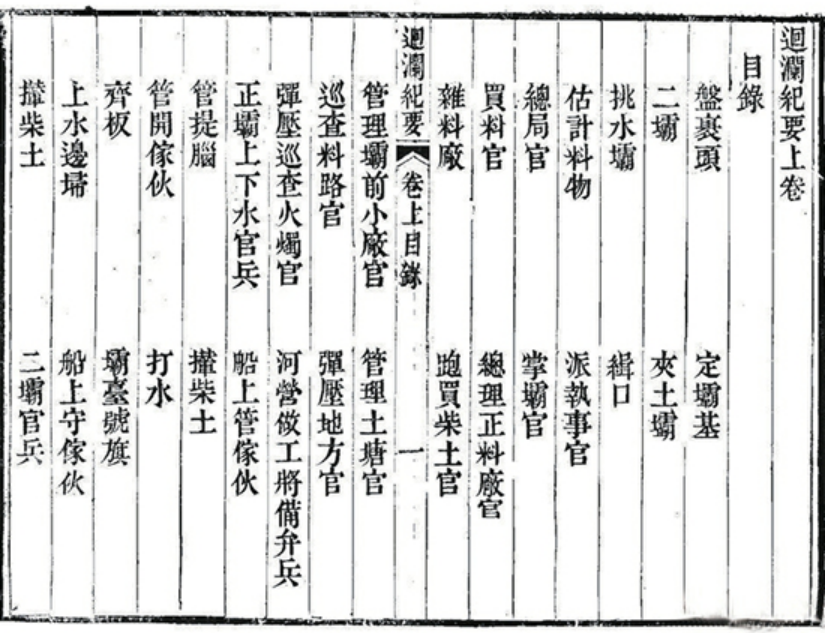 迴瀾紀要上卷
目錄
盤裹頭　定壩基
二壩　夾土壩
挑水壩　緝口
估計料物　派執事官
總局官　掌壩官
買料官　總理正料廠官
雜料廠　跑買柴土官
迴瀾紀要　卷上目錄　一
管理壩前小廠官　管理土塘官
巡查料路官　彈壓地方官
彈壓巡查火燭官　河營做工將備弁兵
正壩上下水官兵　船上管傢伙
管提腦　攆柴土
管開傢伙　打水
齊板　壩臺號旗
上水邊埽　船上守傢伙
攆柴土　二壩官兵